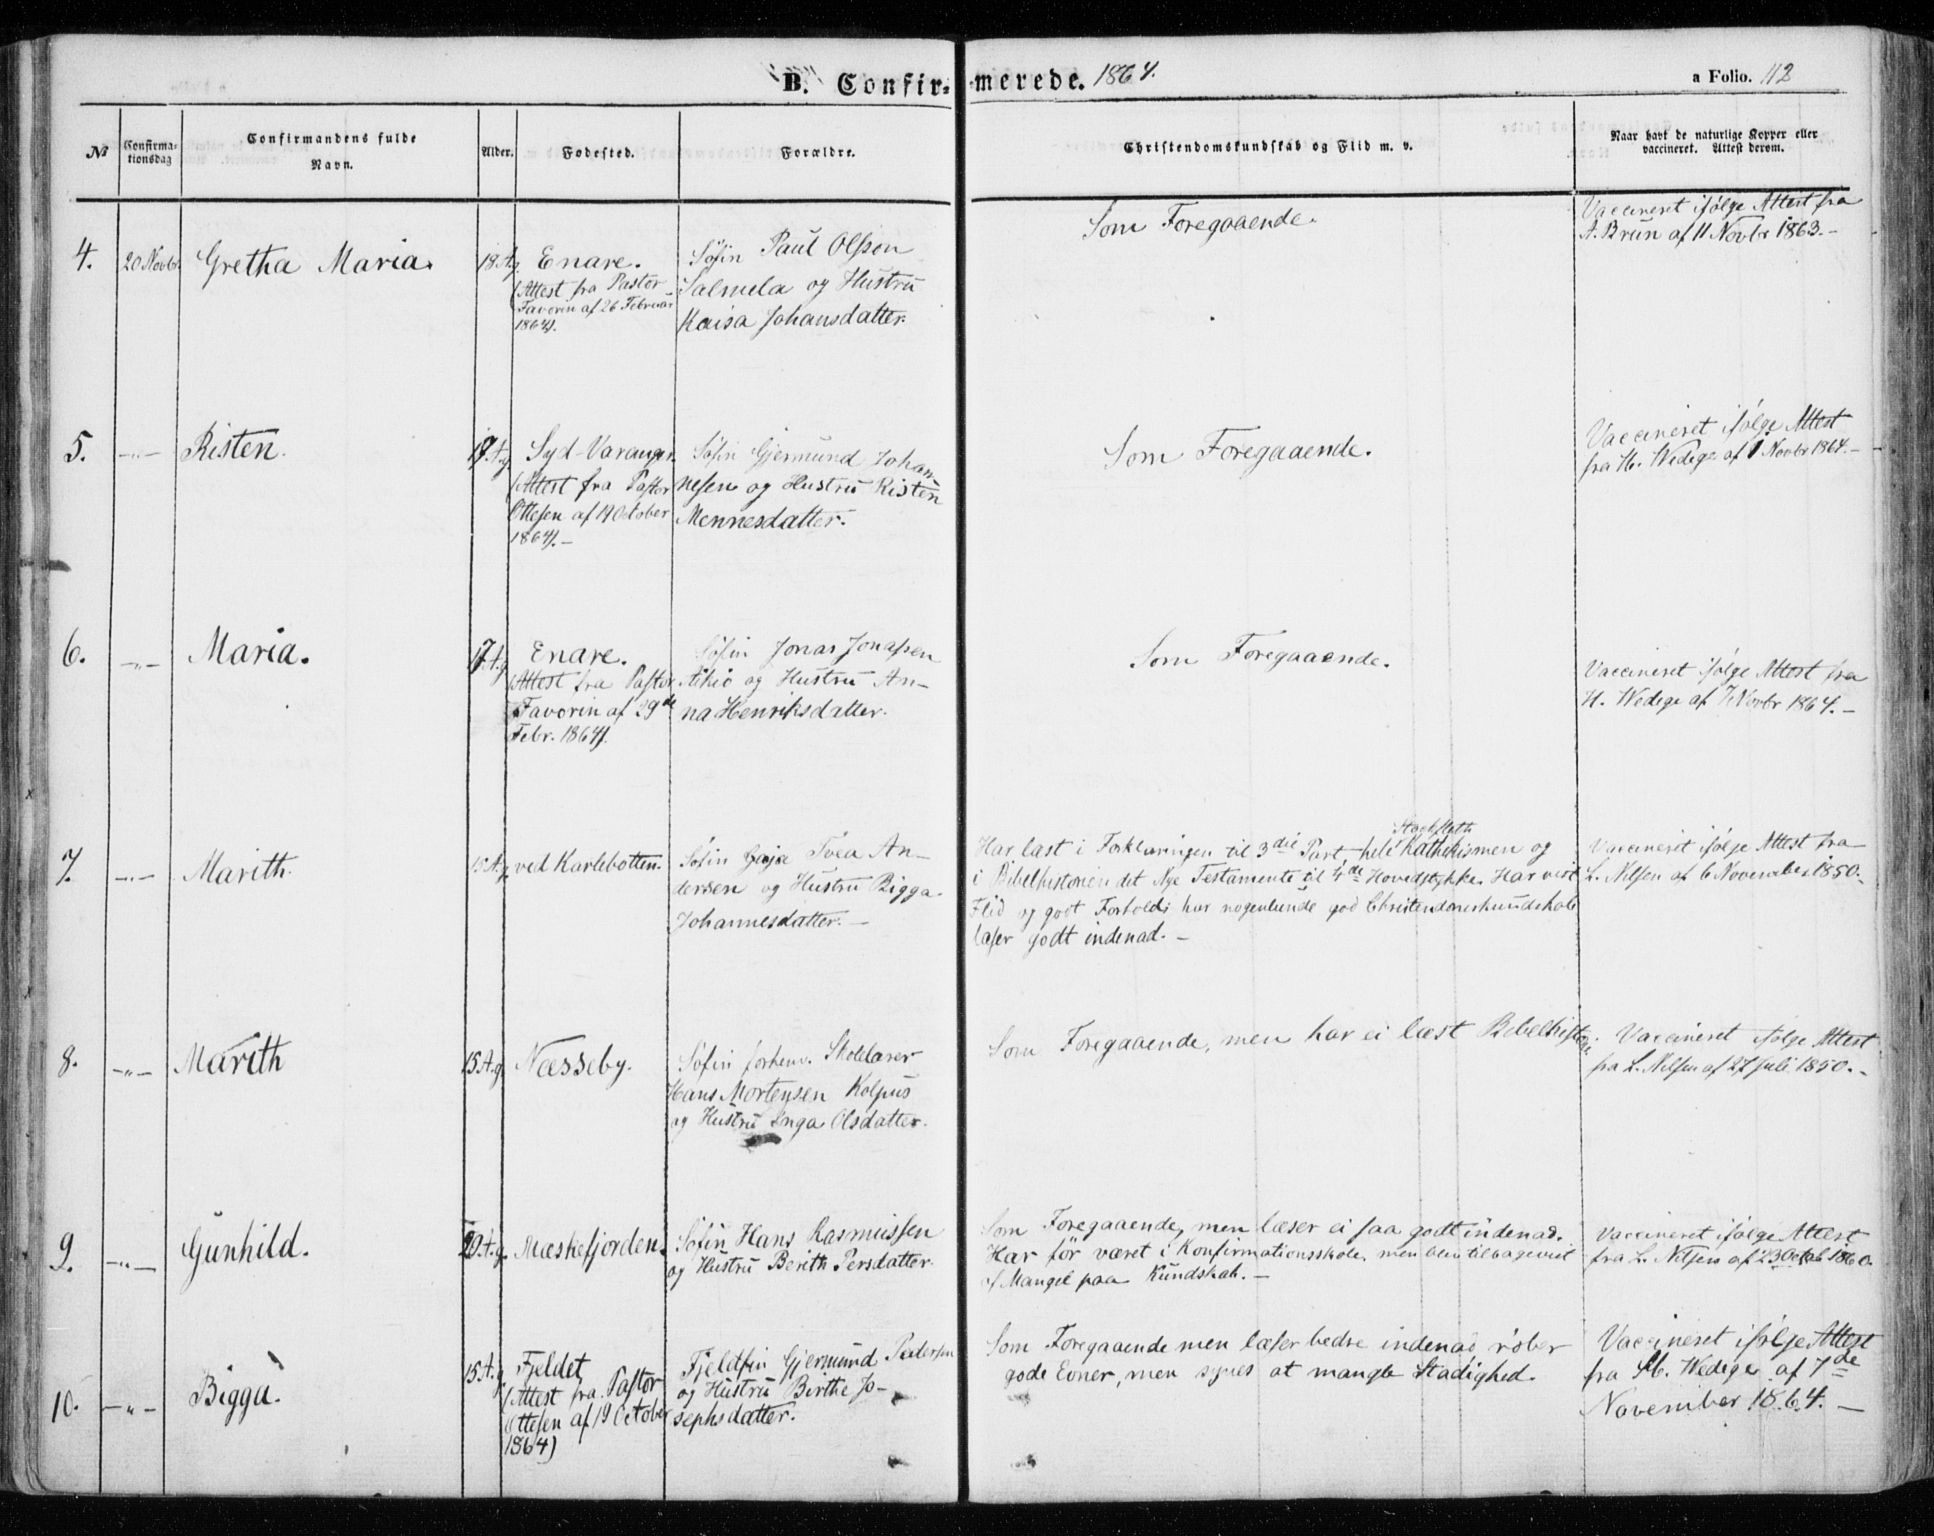 B. Confirmerede. 1864.
a Folio. 112
№
Confirma-
tionsdag
Confirmandens fulde
Navn.
Alder.
Fødested.
Forældre.
Christendomskundskab og Flid m. v.
Naar havt de naturlige Kopper eller
vaccineret. Attest derom.
4.
20 Novbr
Gretha Maria.
18 A g
Enare.
(Attest fra Pastor
Favorin af 26 Februar
1864).
Söfin Paul Olsson
Salmela og Hustru
Kaisa Johansdatter.
Som Foregaaende.
Vaccineret ifølge Attest fra
A. Brun af 11 Novbr 1863.-
5.
-„-
Risten.
A.g
Syd-Varanger.
(Attest fra Pastor
Ottesen af 19 October
1864).-
Söfin Gjermund Johan-
nesen og Hustru Risten
Mennesdatter.
Som Foregaaende.
Vaccineret ifølge Attest
fra H. Wedege af Novbr 1864.-
6.
-„-
Maria.
17 A.g
Enare.
(Attest fra Pastor
Favorin af 29de
Febr. 1864).
Söfin Jonas Jonassen
Aikio og Hustru An-
na Henriksdatter.
Som Foregaaende.
Vaccineret ifølge Attest fra
H. Wedege af 7 Novbr 1864.-
7.
-„-
Marith.
15 A.g
ved Karlebotten.
Söfin Tvea An-
dersen og Hustru Bigga
Johannesdatter.-
Har læst i Forklaringen til 3die Part hele Stockfleth Kathekismen og
i Bibelhistorien det Nye Testamente til 4de Hovedstykke. Har vist
Flid og godt Forhold; har nogenlunde god Christendomskundskab
læser godt indenad.-
Vaccineret ifølge Attest fra
L. Nilsen af 6 November 1850.
8.
-„-
Marith
15 A.g
Næsseby.
Söfin forhenv. Skolelærer
Hans Mortensen Kolpus
og Hustru Inga Olsdatter.
Som Foregaaende, men har ei læst Bibelhistorie.
Vaccineret ifølge Attest
fra L. Nilsen af 27 Juli 1850.-
9.
-„-
Gunhild.
20 A.g
Mæskefjorden.
Söfin Hans Rasmussen
og Hustru Berith Persdatter.
Som Foregaaende, men læser ei saa godt indenad.
Har før været i Konfirmationsskole, men blev tilbagevist
af Mangel paa Kundskab.-
Vaccineret ifølge Attest
fra L. Nilsen af 23 Octob 1860.
10.
-„-
Bigga.
15 A.g
Fjeldet,
(Attest fra Pastor
Ottesen af 19 October
1864)
Fjeldfin Gjermund Pedersen
og Hustru Birthe Jo-
sephsdatter.
Som Foregaaende men læser bedre indenad, røber
gode Evner, men synes at mangle Stadighed.
Vaccineret ifølge Attest
fra H. Wedege af 7de
November 1864.-